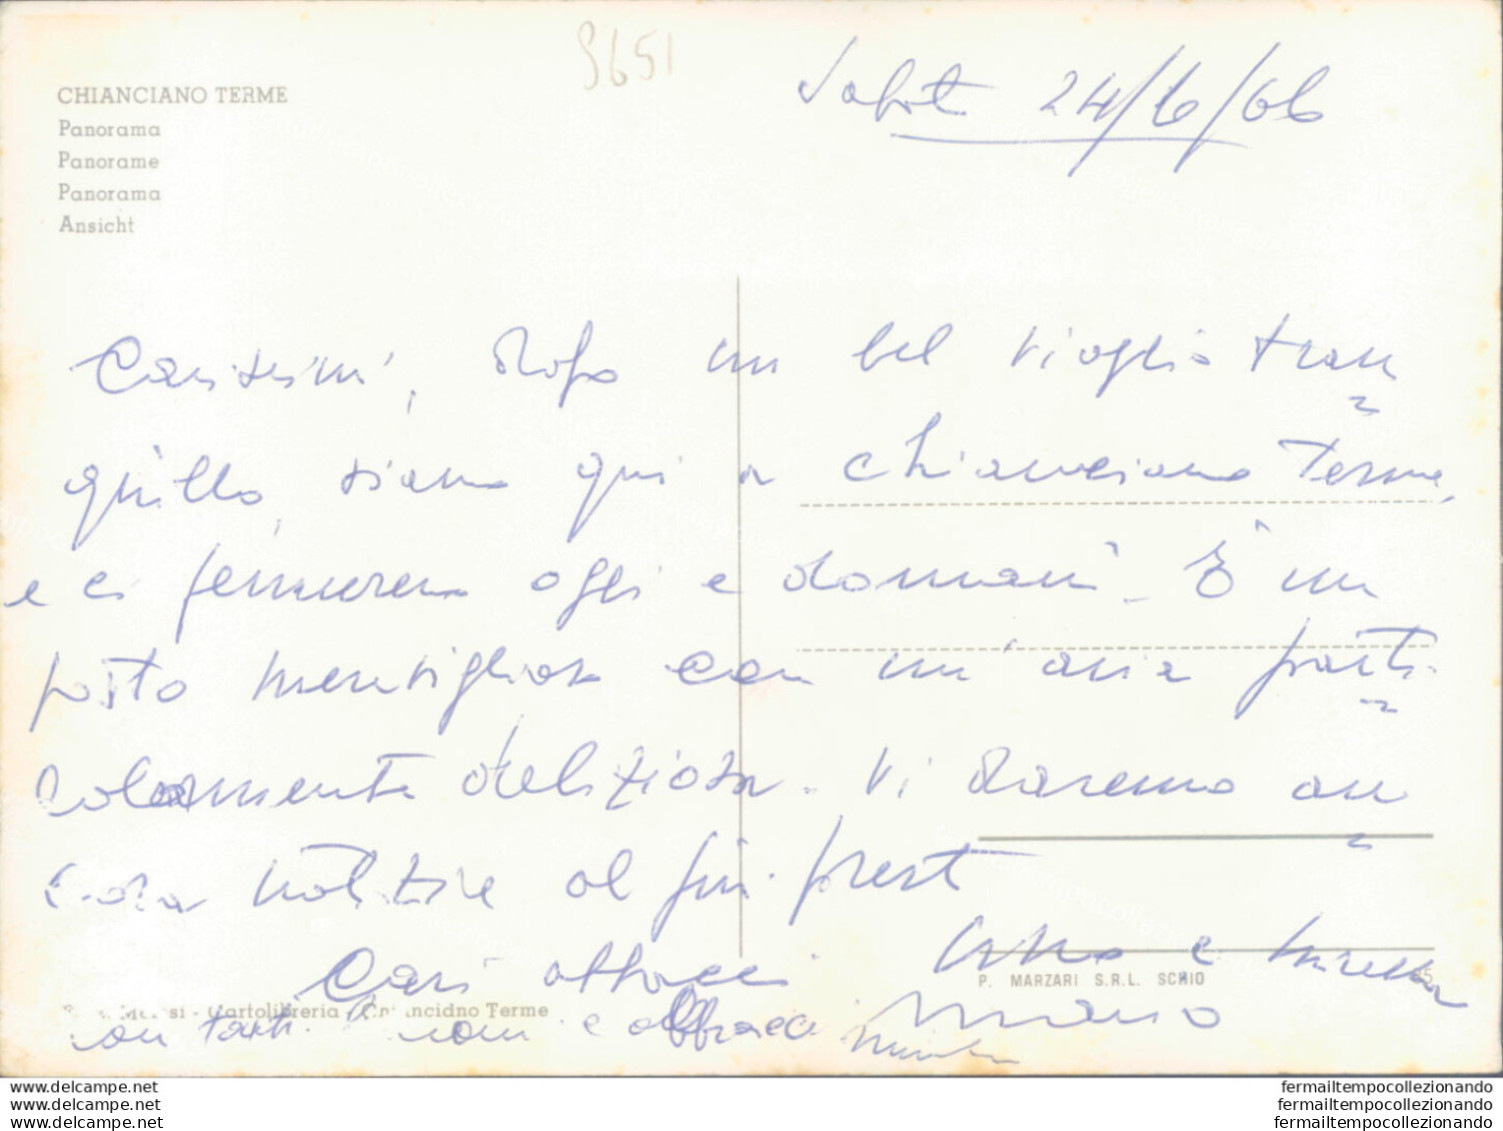 9651
Sabato 24/6/66
CHIANCIANO TERME
Panorama
Panorame
Panorama
Ansicht
Carissimi, dopo un bel viaggio tran
quillo, siamo qui a Chianciano Terme,
e ci fermeremo oggi e domani. È un
posto meraviglioso con un'aria parti
colarmente deliziosa. Vi daremo an
cora notizie al più presto
Cari abbracci
e Mirella
P. MARZARI S.R.L. SCHIO
Cartolibreria Chianciano Terme
con tanti e abbracci
Mario
delcampe.net
delcampe.net
delcampe.net
fermailtempocollezionando
fermailtempocollezionando
fermailtempocollezionando